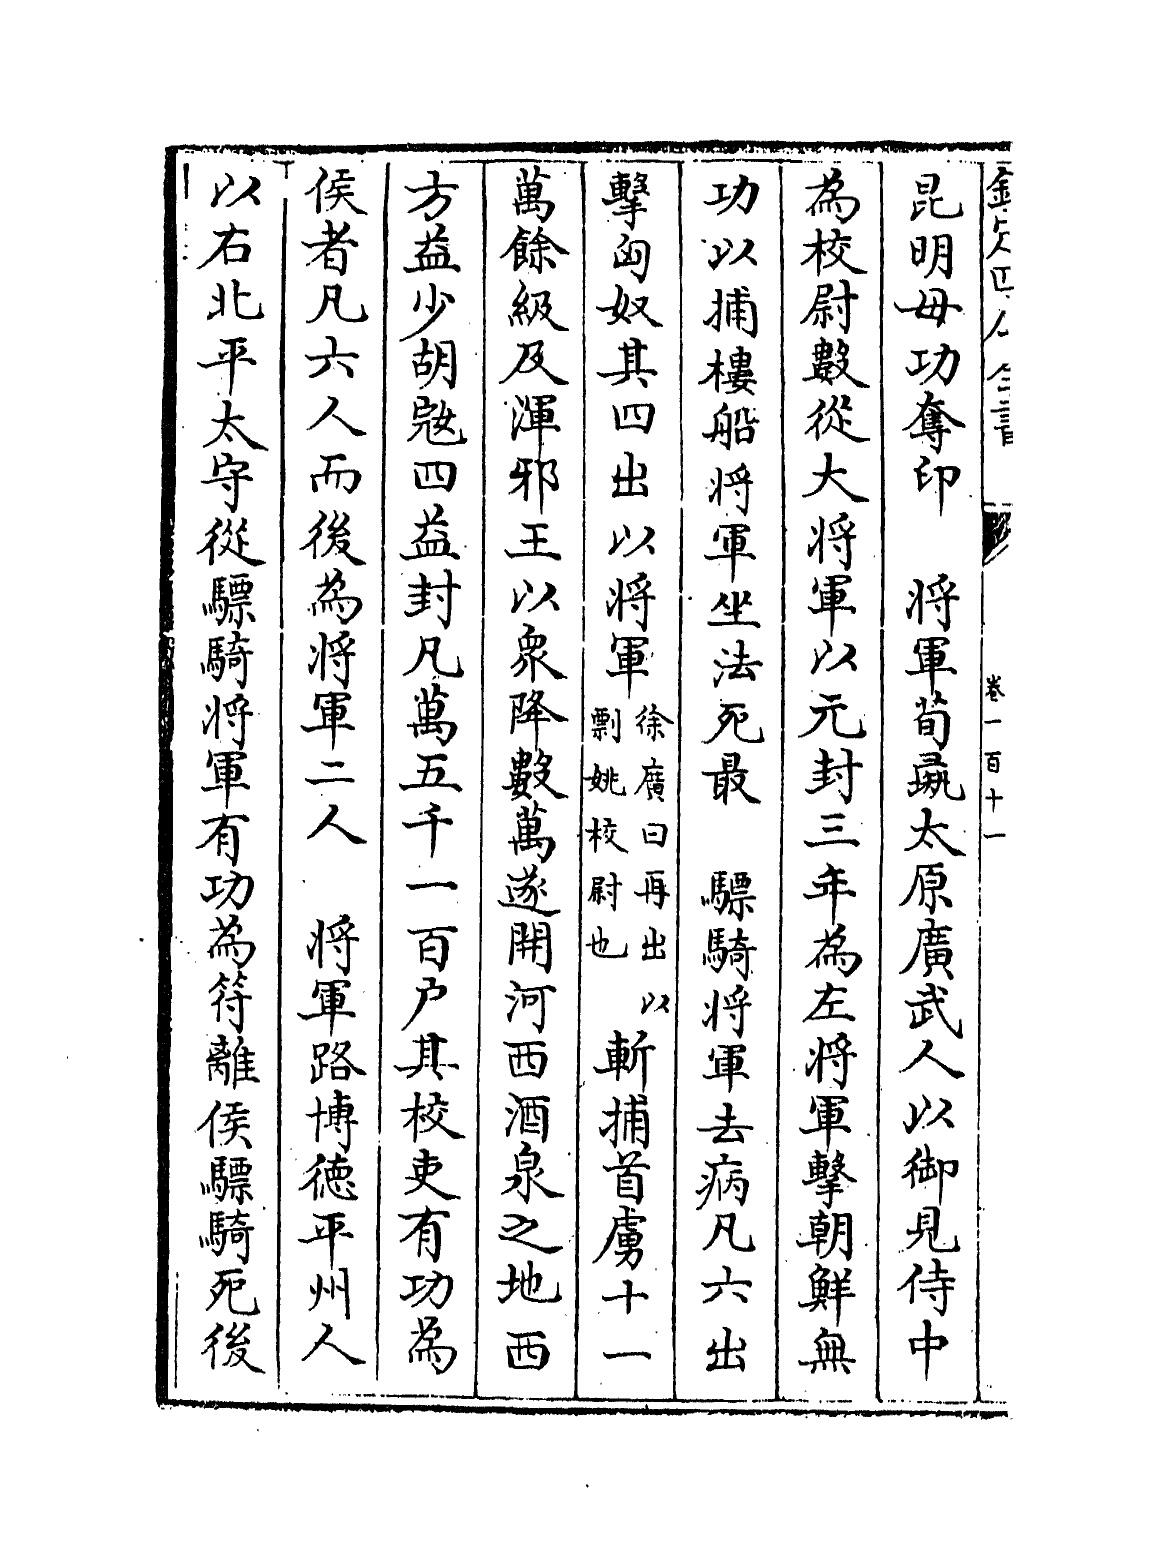 欽定四庫全書
卷一百十一
昆明毋功奪印　將軍荀彘太原廣武人以御見侍中
為校尉數從大將軍以元封三年為左將軍擊朝鮮無
功以捕樓船將軍坐法死最　驃騎將軍去病凡六出
擊匈奴其四出以將軍徐廣曰再出以剽姚校尉也斬捕首虜十一
萬餘級及渾邪王以衆降數萬遂開河西酒泉之地西
方益少胡寇四益封凡萬五千一百户其校吏有功為
侯者凡六人而後為將軍二人　將軍路博德平州人
以右北平太守從驃騎將軍有功為符離侯驃騎死後